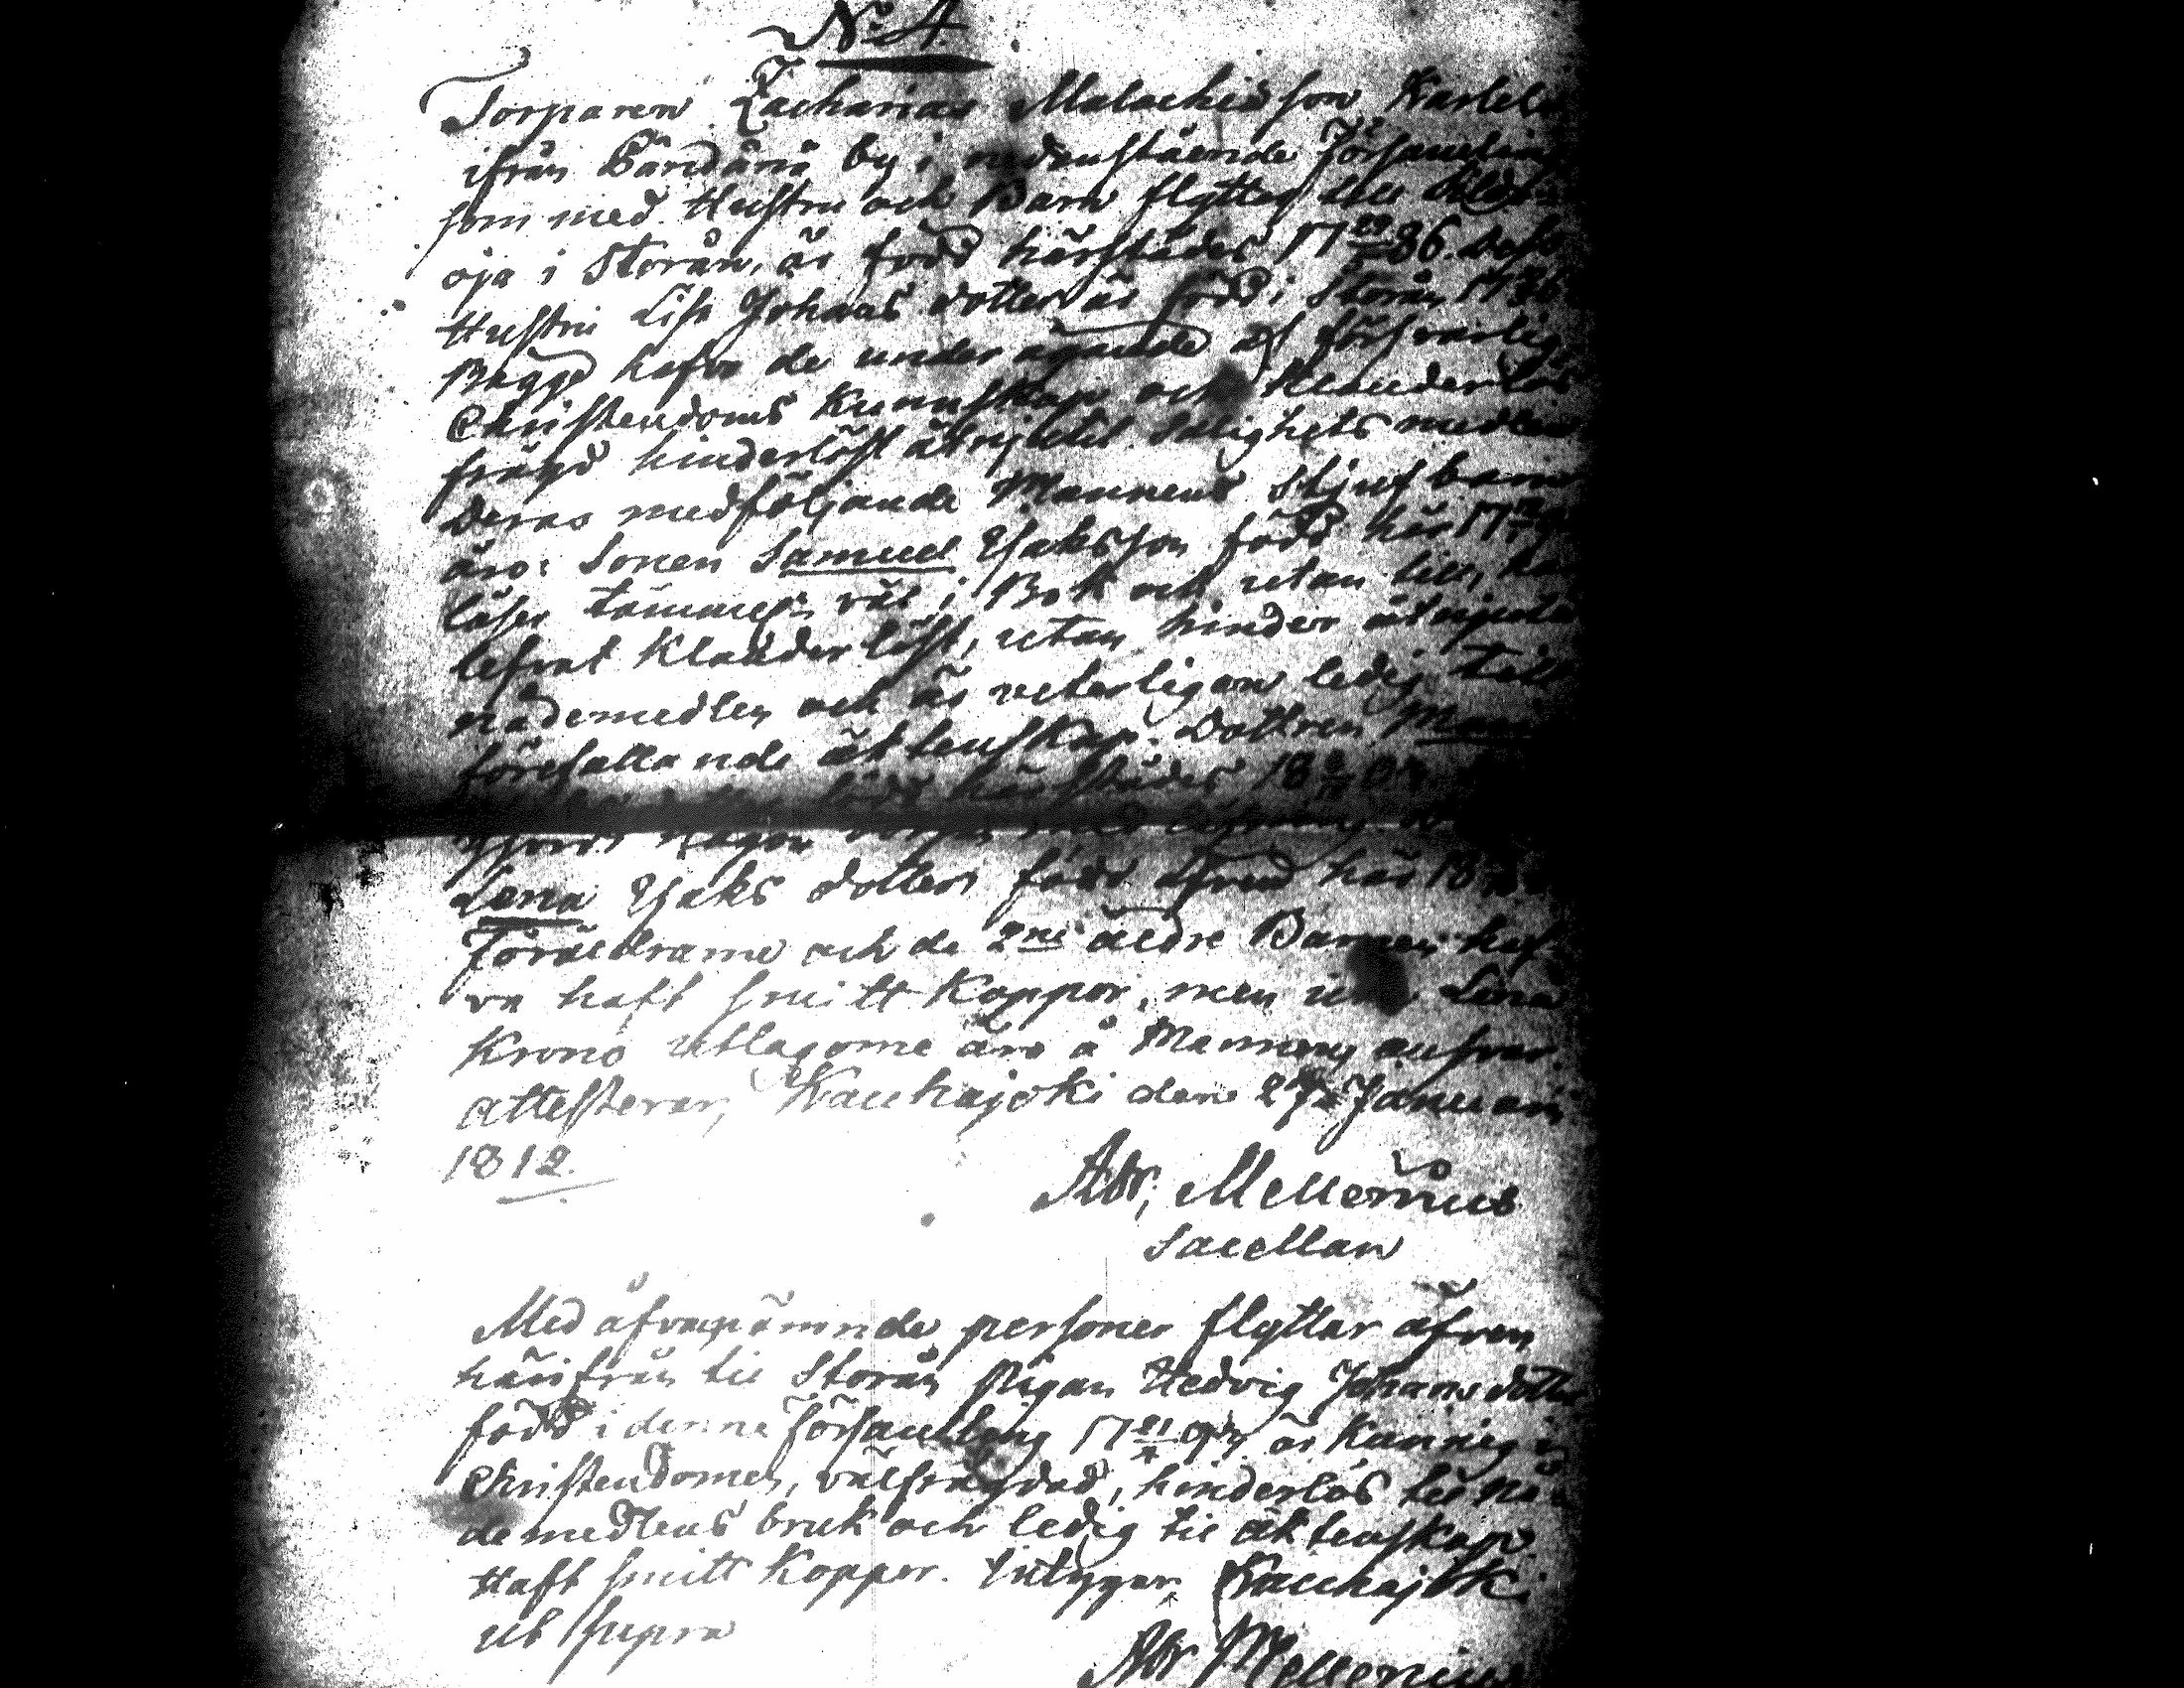 No 4.
Torparen Zacharias Malachiæson Karlela
ifrån by i nedenstående Församling
som med Hustru och Barn flyttar till
öja i Storån, är född härstädes 17 86. Dess
Hustru Lisa Johans dotter är född i Storån 17
Bägge hafva de under ägande af försvarlig
Christendoms Kunnskap och Klanderlös
frägd hinderlöst åtnjutit Salighets medlen
Deras medföljande Mannens Stjufbarn
äro: Sonen Samuel Esaksson född här 17
läser väl i Bok och utan till, har
lefvat Klanderlöst, utan hinder åtnjutit
nådemedlen och är veterligen ledig till
förefallande äktenskap. Dottren
härstädes 18
gjordt någon
Lena Esaks dotter, född äfven här 18
Föräldrarne och de 2ne äldre Barnen haf-
va haft smitt Koppor, men icke Lena
Krono Utlagorne äro å Mannen
attesterar, Kauhajoki den 27 Januari
1812.
Abr, Mellenius
Sacellan
Med åfvannämnde personer flyttar äfven
härifrån til Storån Pigan Hedvig Johansdotter
född i denne Församling 17 är Kunnig i
Christendomen, välfrägdad, hinderlös til Nå
demedlens bruk och ledig til äktenskap.
Haft smitt Koppor. Intygar, Kauhajoki
ut supra
Abr Mellenius